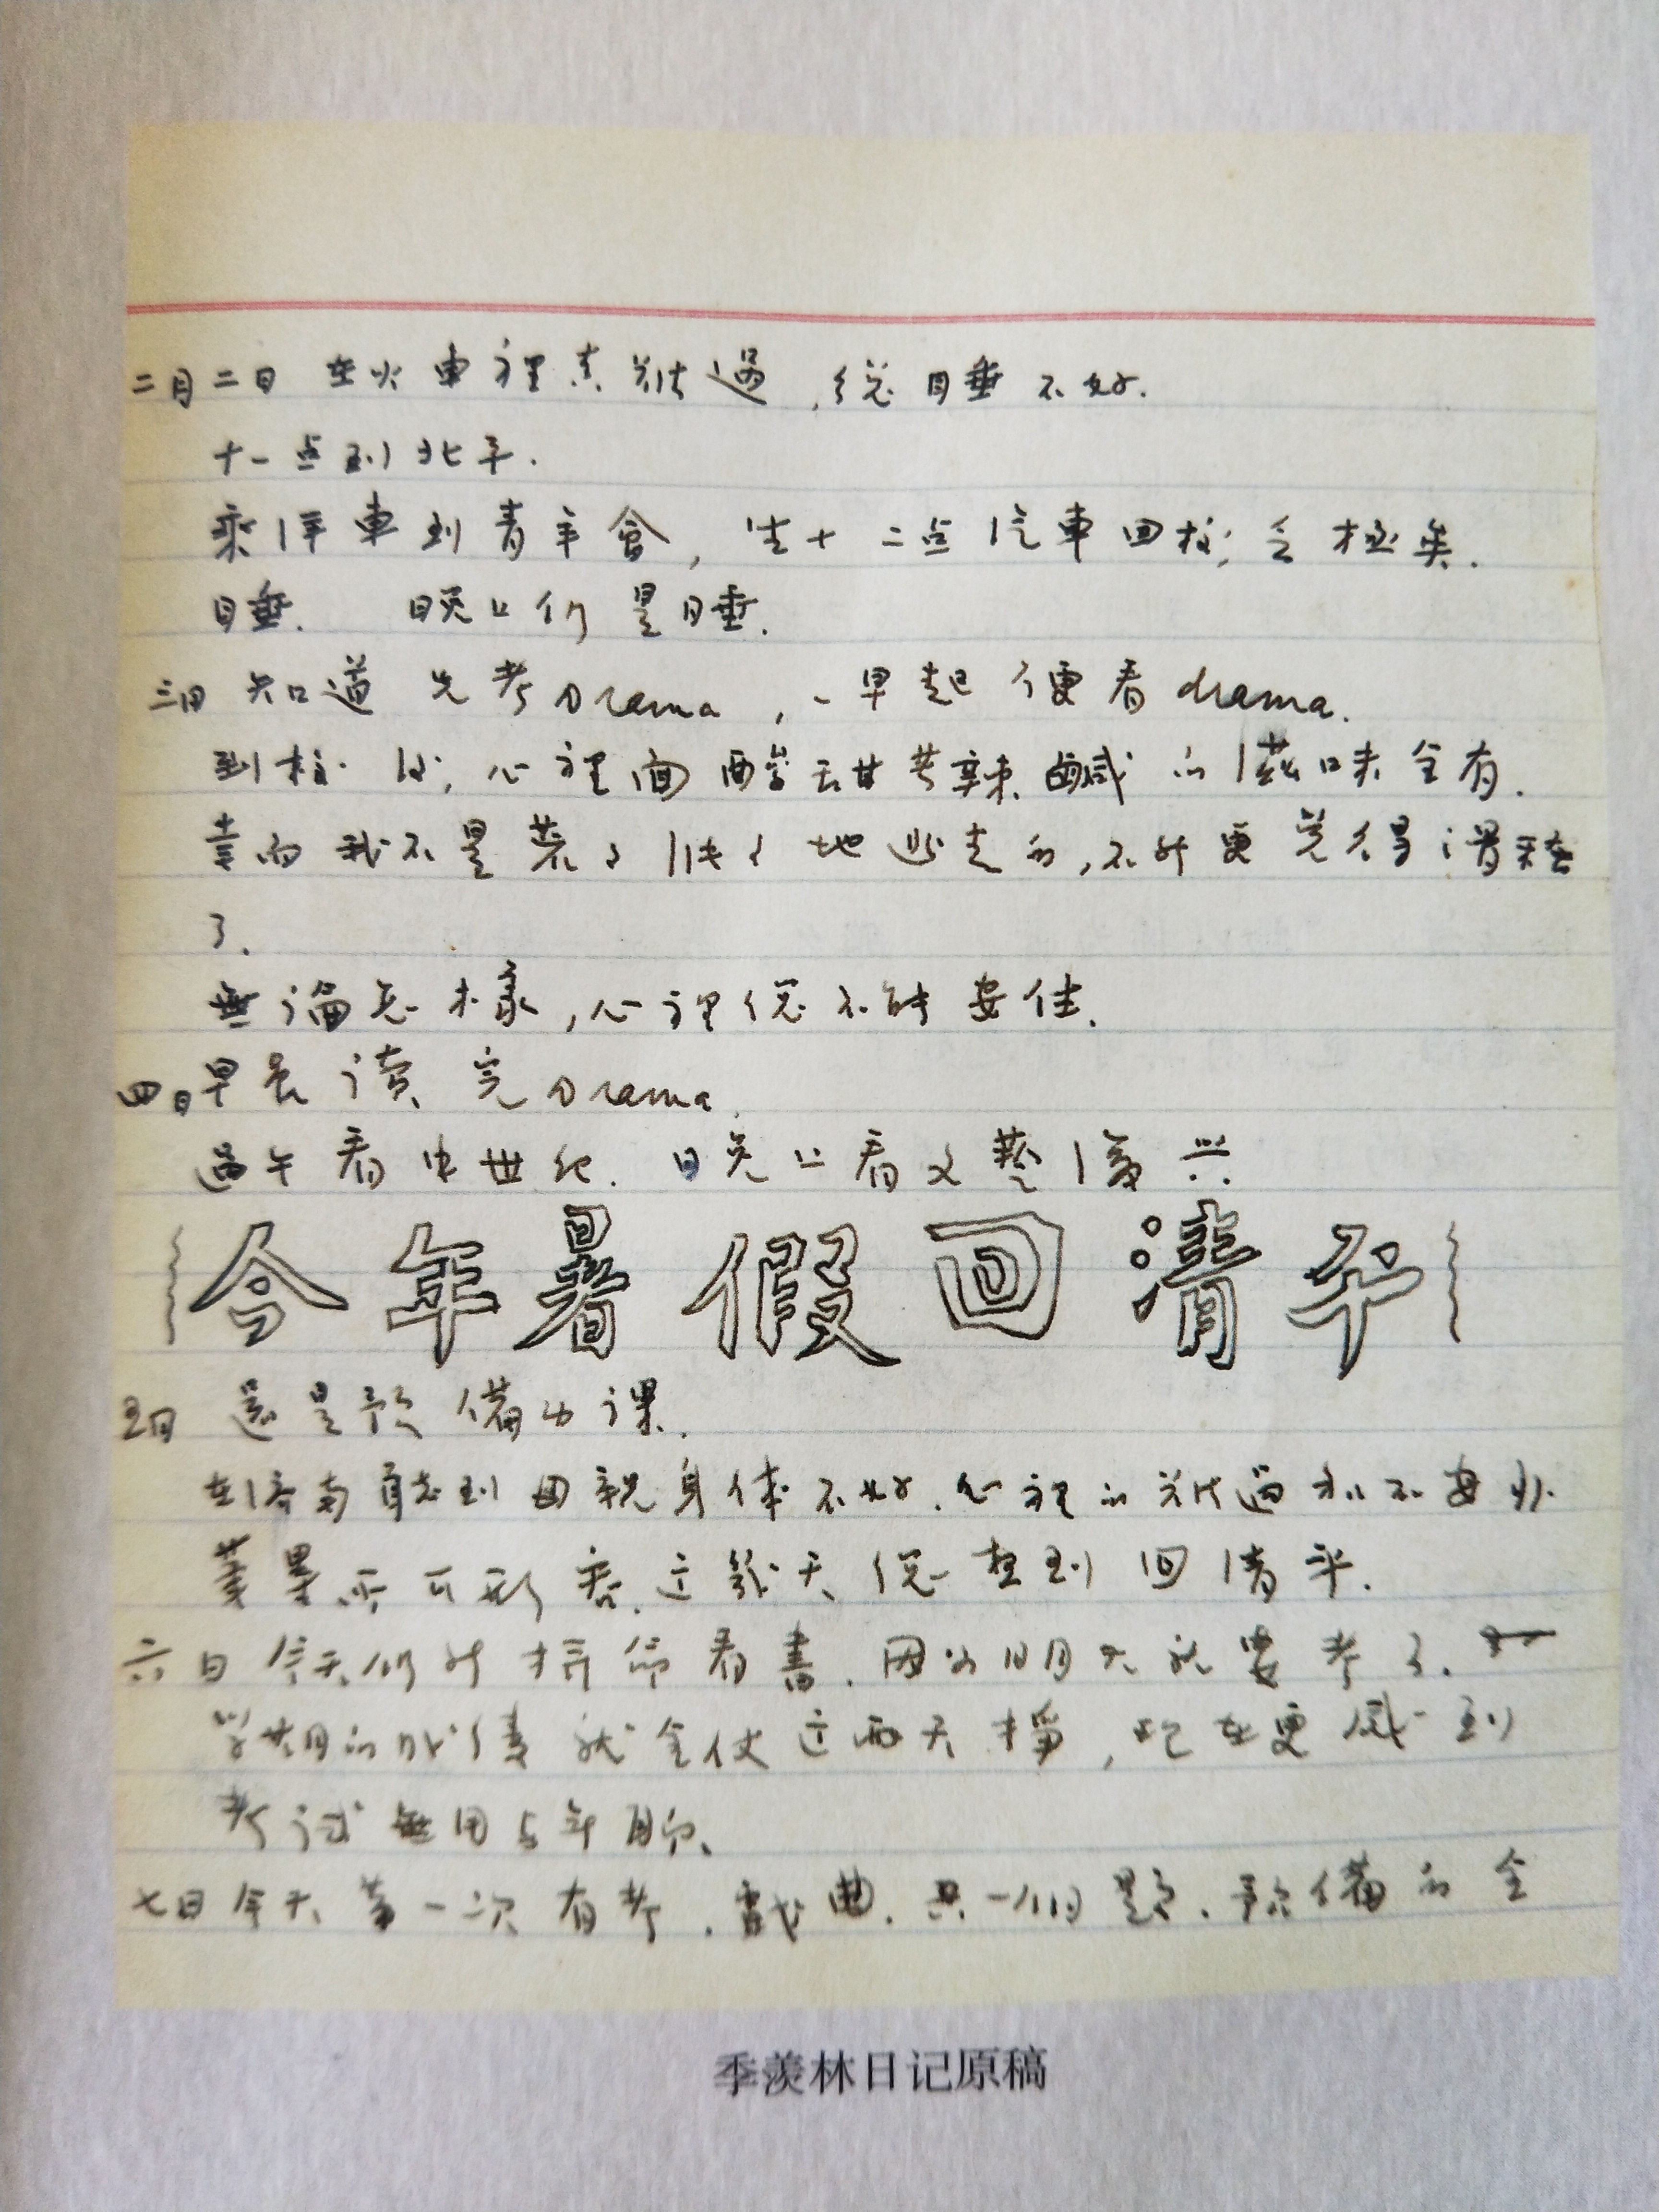 二月二日 在火車裡真難過，總睡不好.
十一点到北平.
乘洋車到青年會，坐十二点汽車回校，乏極矣.
睡. 晚上仍是睡.
三日 知道先考Drama，一早起便看drama.
到校後，心裡面酸甜苦辣鹹的滋味全有.
幸而我不是慕了快了地 走的，不然更覺得滑稽
了.
無論怎樣，心裡總不能安住.
四日 早晨讀完Drama.
過午看中世纪. 晚上看文藝復兴.
今年暑假回清平
五日 還是預備功课.
在濟南聽到母親身体不好. 心裡的难過和不安非
筆墨所可形容. 这幾天總想到回清平.
六日 今天仍然拼命看書. 因为明天就要考了.
学期的成績就全仗这兩天掙，現在更感到
考试無用与無聊.
七日 今天第一次有考. 戲曲. 只一個題. 預備的全
季羡林日记原稿